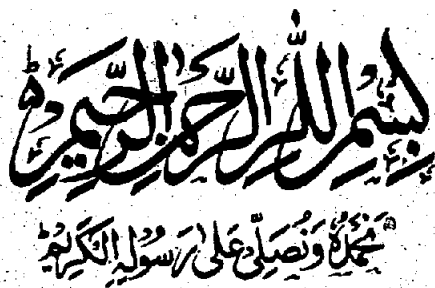 بِسْمِ اللّٰهِ الرَّحْمٰنِ الرَّحِيْمِ
نَحْمَدُهٗ وَنُصَلِّیْ عَلٰی رَسُوْلِهِ الْكَرِیْمِ